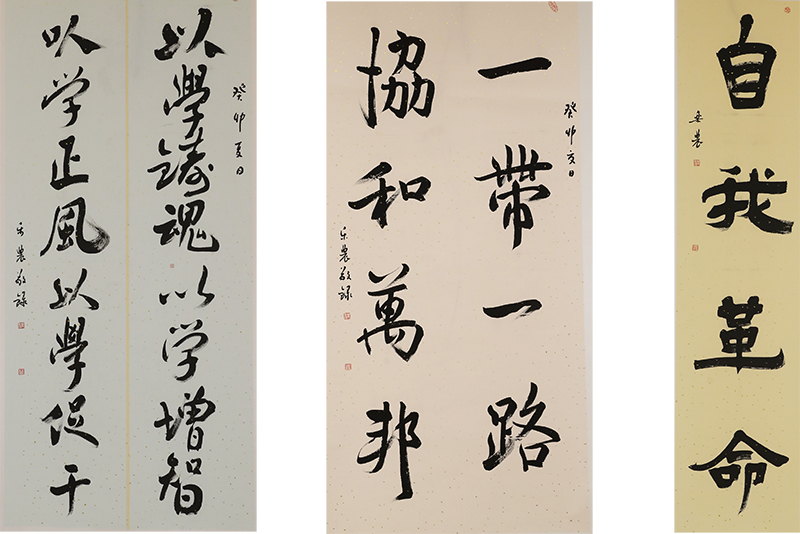 癸卯夏日
以學鑄魂以学增智
以学正風以學促干
乐農敬録
癸卯夏日
一帶一路
協和萬邦
乐農敬録
自我革命
乐農